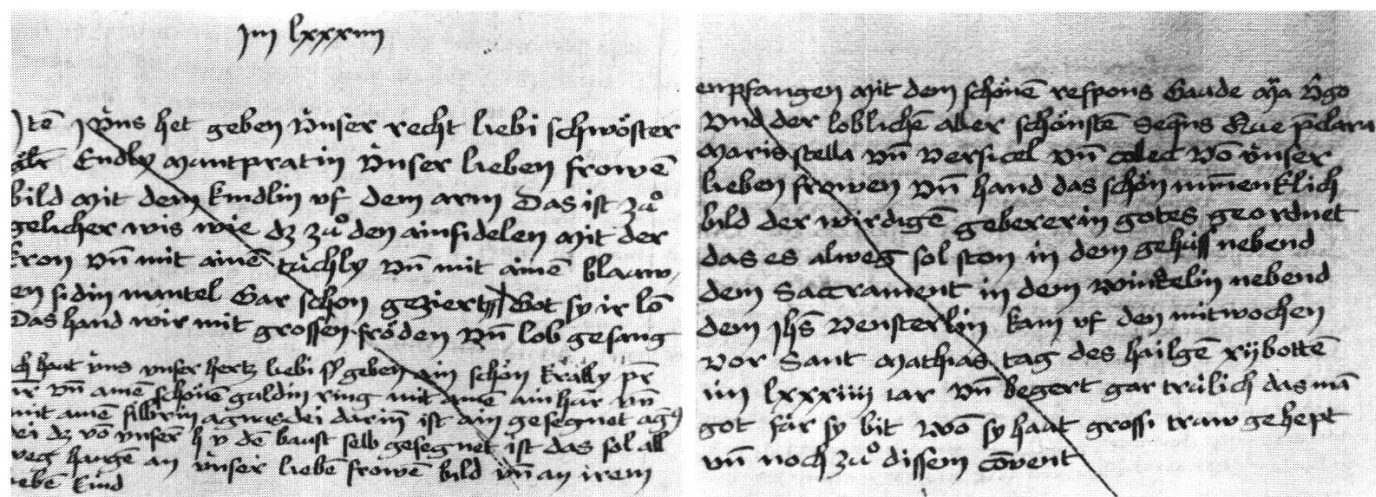 iiii lxxxiiii
Itē Ṽns het geben v̈nser recht liebi schwöster
Endly Mantpratin v̈nser lieben frowē
bild mit dem kindlin vf dem arm Das ist zů
gelicher wis wie dz zů den ainsidelen mit der
kron vn̄ mit ainē tüchly vn̄ mit ainē blaaw
en sidin mantel Gar schon geziert Got sy ir lō
Das hand wir mit grossen fröden Vn̄ lob gesang
ch haat v̈ns vnser hertz liebi geben ain schön krälly
vn̄ ainē schönē guldin ring mit ainē ainhar vn̄
mit ainē silbrin agnus dei darin̄ ist ain gesegnet ag
dei dz vō v̈nserē h v dē baust selb gesegnet ist das sol all
weg hangē an v̈nser liebē frowē bild vn̄ an irem
lieben kind
enpfangen mit dem schönē respons Gaude Ma v̄go
Vnd der loblichē aller schönstē Seqn̄s Aue p̄clara
Maris stella vn̄ versicel vn̄ colec vō v̈nser
lieben frowen vn̄ hand das schön minenklich
bild der wirdigē gebererin gotes geordnet
das es alweg sol ston in dem gehüss nebend
dem Sacrament in dem winkelin nebend
dem Jhs̄ vensterlin kam vf den mitwochen
vor Sant Mathias tag des hailgē xijbottē
iiii lxxxiiii iar vn̄ begert gar trülich das mā
got für sy bit wō sy haat grossi trüw gehept
vn̄ noch zů dissem cōvent